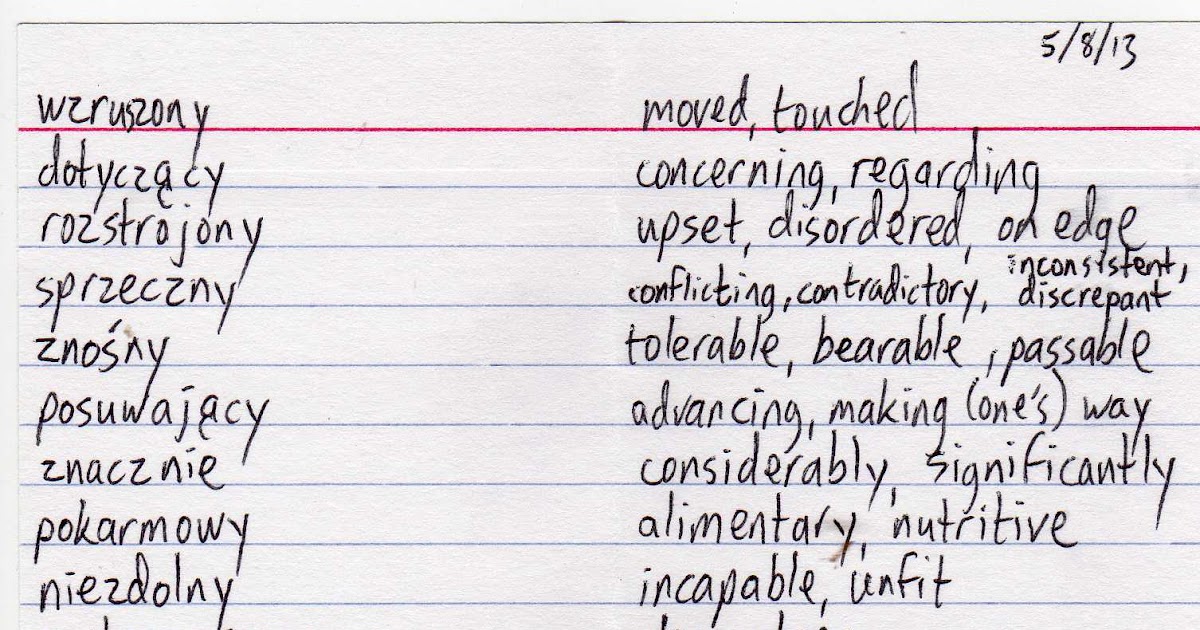 5/8/13
wzruszony moved, touched
dotyczący concerning, regarding
rozstrojony upset, disordered, on edge
sprzeczny conflicting, contradictory, inconsistent, discrepant
znośny tolerable, bearable, passable
posuwający advancing, making (one's) way
znacznie considerably, significantly
pokarmowy alimentary, nutritive
niezdolny incapable, unfit